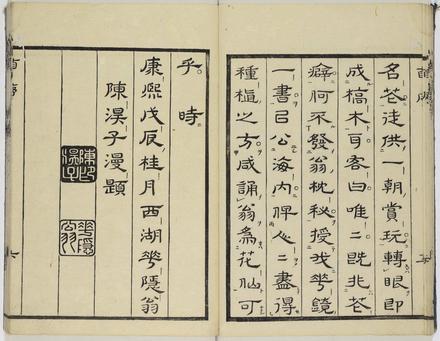 名花徒供一朝賞玩轉眼即
成槁木耳客曰唯二旣非花
癖何不發翁枕秘授我華鏡
一書以公海內俾人二盡得
種植之方咸誦翁為花仙可
乎時
康熙戊辰桂月西湖華隱翁
陳淏子漫題